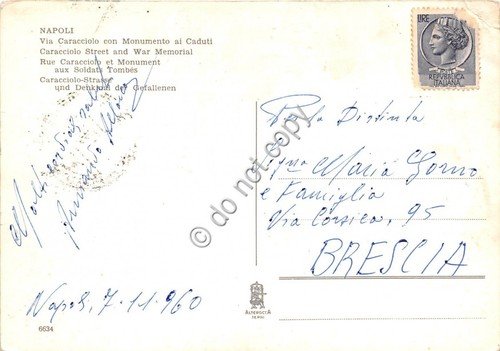 NAPOLI
Via Caracciolo con Monumento ai Caduti
Caracciolo Street and War Memorial
Rue Caracciolo et Monument
aux Soldats Tombés
Caracciolo-Strasse
und Denkmal der Gefallenen
LIRE
REPVBBLICA
ITALIANA
Molti cordiali saluti
Armando
Per la Distinta
Maria
e Famiglia
Via Corsica, 95
BRESCIA
Napoli, 7.11.960
ALTEROCCA
TERNI
6634
do not copy